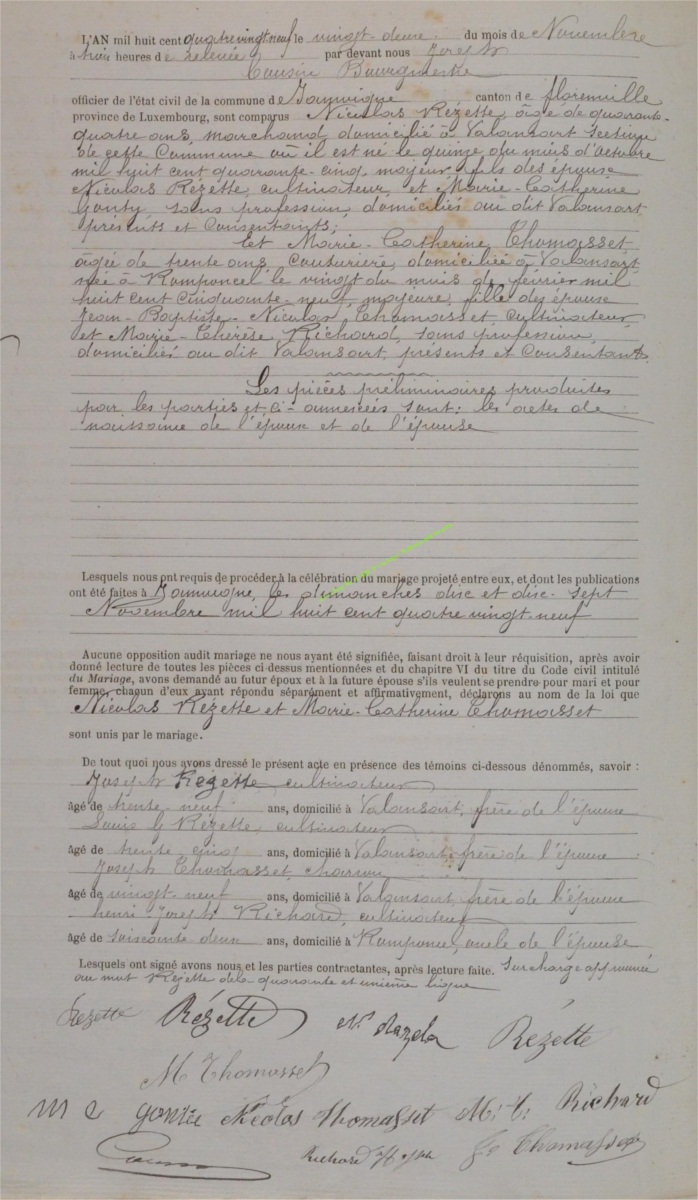 L'AN mil huit cent quatre vingt neuf le vingt deux du mois de Novembre
à trois heures de relevée par devant nous Joseph
Cousin Bourgmestre
officier de l'état civil de la commune de Jamoigne canton de florenville
province de Luxembourg, sont comparus Nicolas Rézette, âgé de quarante-
quatre ans, marchand, domicilié à Valansart section
de cette Commune où il est né le quinze du mois d'octobre
mil huit cent quarante-cinq, majeur, fils des époux
Nicolas Rézette, cultivateur, et Marie-Catherine
Gonty, sans profession, domiciliés au dit Valansart
présents et consentants;
Et Marie-Catherine Thomasset
âgée de trente ans, Couturière, domiciliée à Valansart
née à Romponcel le vingt du mois de février mil
huit cent cinquante-neuf, majeure, fille des époux
Jean-Baptiste-Nicolas Thomasset cultivateur
et Marie-Thérèse Richard, sans profession,
domiciliés au dit Valansart, présents et consentant.
Les pièces préliminaires produites
par les parties et ci-annexées sont: les actes de
naissance de l'époux et de l'épouse
Lesquels nous ont requis de procéder à la célébration du mariage projeté entre eux, et dont les publications
ont été faites à Jamoigne, les dimanches dix et dix-sept
Novembre mil huit cent quatre vingt neuf
Aucune opposition audit mariage ne nous ayant été signifiée, faisant droit à leur réquisition, après avoir
donné lecture de toutes les pièces ci-dessus mentionnées et du chapitre VI du titre du Code civil intitulé
du Mariage, avons demandé au futur époux et à la future épouse s'ils veulent se prendre pour mari et pour
femme, chacun d'eux ayant répondu séparément et affirmativement, déclarons au nom de la loi que
Nicolas Rézette et Marie-Catherine Thomasset
sont unis par le mariage.
De tout quoi nous avons dressé le présent acte en présence des témoins ci-dessous dénommés, savoir :
Joseph Rézette, cultivateur
âgé de trente-neuf ans, domicilié à Valansart, frère de l'époux
Rézette, cultivateur
âgé de trente cinq ans, domicilié à Valansart frère de l'époux
Joseph Thomasset, charron
âgé de vingt-neuf ans, domicilié à Valansart, frère de l'épouse
henri-Joseph Richard, cultivateur
âgé de soixante deux ans, domicilié à Romponcel, oncle de l'épouse
Lesquels ont signé avons nous et les parties contractantes, après lecture faite. Surcharge approuvée
au mot Rézette de la quarante et unième ligne
Rezette Rézette Rézette
M Thomasset
m c gontée Nicolas Thomasset M. t. Richard
Cousin Richard Thomasset